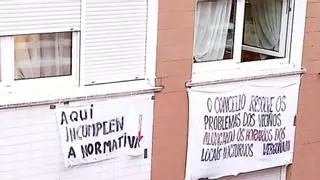 AQUÍ
INCUMPLEN
A NORMATIVA
O CONCELLO RESOLVE OS
PROBLEMAS DOS VECIÑOS
ALONGANDO OS HORARIOS DOS
LOCAIS NOCTURNOS